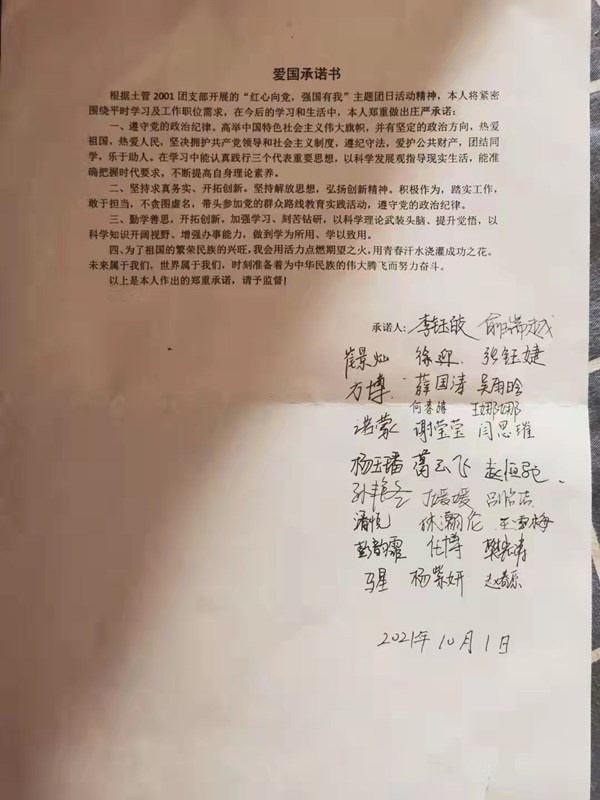 爱国承诺书
根据土管2001团支部开展的“红心向党，强国有我”主题团日活动精神，本人将紧密
围绕平时学习及工作职位需求，在今后的学习和生活中，本人郑重做出庄严承诺：
一、遵守党的政治纪律。高举中国特色社会主义伟大旗帜，并有坚定的政治方向，热爱
祖国，热爱人民，坚决拥护共产党领导和社会主义制度，遵纪守法，爱护公共财产，团结同
学，乐于助人。在学习中能认真践行三个代表重要思想，以科学发展观指导现实生活，能准
确把握时代要求，不断提高自身理论素养。
二、坚持求真务实、开拓创新。坚持解放思想，弘扬创新精神。积极作为，踏实工作，
敢于担当，不贪图虚名，带头参加党的群众路线教育实践活动，遵守党的政治纪律。
三、勤学善思，开拓创新。加强学习、刻苦钻研，以科学理论武装头脑、提升觉悟，以
科学知识开阔视野、增强办事能力，做到学为所用、学以致用。
四、为了祖国的繁荣民族的兴旺，我会用活力点燃期望之火，用青春汗水浇灌成功之花。
未来属于我们，世界属于我们，时刻准备着为中华民族的伟大腾飞而努力奋斗。
以上是本人作出的郑重承诺，请予监督！
承诺人：李钰皎
崔景灿 徐迎 张钰婕
方博 薛国涛 吴雨晗
何春晴 王娜娜
洪蒙 谢莹莹 闫思璀
杨玉璠 葛云飞
孙艳冬 尤媛媛
潘悦 林瀚伦 王雪梅
彭韵霏 任博
马星 杨紫妍
2021年10月1日